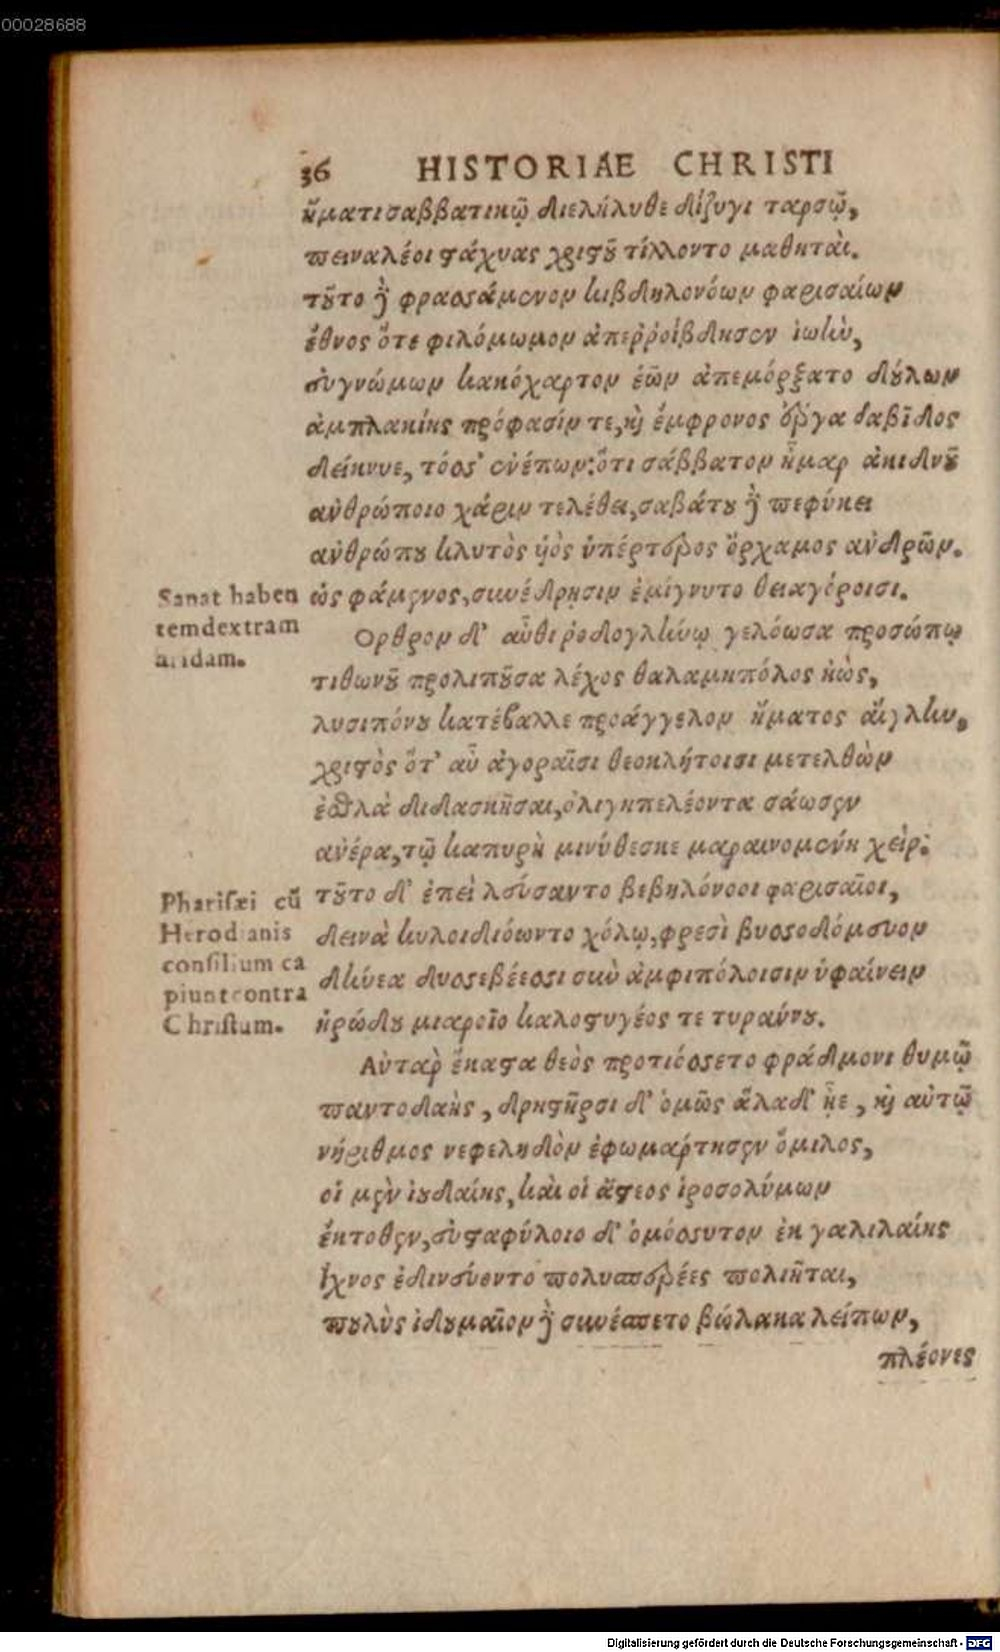 00028688
36 HISTORIAE CHRISTI
ἤματι σαββατικῷ διελήλυθε δίζυγι ταρσῷ,
πειναλέοι στάχυας χριστοῦ τίλλοντο μαθηταὶ.
τοῦτο δὲ φρασσάμενον κιβδηλονόων φαρισαίων
ἔθνος ὅτε φιλόμωμον ἀπεῤῥοίβδησεν ἰωὴν,
συγνώμων κακόχαρτον ἑῶν ἀπεμόρξατο δούλων
ἀμπλακίης πρόφασίν τε, καὶ ἔμφρονος ἔργα δαβῖδος
δείκνυε, τόσσ' ἐνέπων: ὅτι σάββατον ἦμαρ ἀκιδνοῦ
ἀνθρώποιο χάριν τελέθει, σαβάτου δὲ πεφύκει
ἀνθρώπου κλυτὸς υἱὸς ὑπέρτερος ὄρχαμος ἀνδρῶν.
Sanat haben
ὡς φάμενος, συνέδρησιν ἐμίγνυτο θειαγόροισι.
temdextram
aridam.
Ορθρον δ' αὖθι ῥοδογλήνῳ γελόωσα προσώπῳ
τιθωνοῦ προλιποῦσα λέχος θαλαμηπόλος ἠὼς,
λυσιπόνου κατέβαλλε προάγγελον ἤματος αἴγλην,
χριστὸς ὅτ' αὖ ἀγοραῖσι θεοκλήτοισι μετελθὼν
ἐσθλὰ διδασκῆσαι, ὀλιγηπελέοντα σάωσεν
ἀνέρα, τῷ καπυρὴ μινύθεσκε μαραινομένη χεὶρ:
Pharisæi cū
τοῦτο δ' ἐπεὶ λεύσαντο βεβηλόνοοι φαρισαῖοι,
Herodianis
δεινὰ κυλοιδιόωντο χόλῳ, φρεσὶ βυσσοδόμευον
consilium ca
δήνεα δυσσεβέεσσι σὺν ἀμφιπόλοισιν ὑφαίνειν
piunt contra
Christum.
ἡρώδου μιαροῖο καλοστυγέος τε τυράννου.
Αὐτὰρ ἕκαστα θεὸς προτιόσσετο φράδμονι θυμῷ
παντοδαὴς, δρηστῆρσι δ' ὁμῶς ἅλαδ' ᾖε, καὶ αὐτῷ
νήριθμος νεφεληδὸν ἐφωμάρτησεν ὅμιλος,
οἱ μὲν ἰουδαίης, καὶ οἱ ἄστεος ἱροσολύμων
ἔκτοθεν, εὐσταφύλοιο δ' ὁμόσσυτον ἐκ γαλιλαίης
ἴχνος ἐδινεύοντο πολυσπερέες πολιῆται,
πουλὺς ἰδουμαῖον δὲ συνέσπετο βώλακα λείπων,
πλέονες
Digitalisierung gefördert durch die Deutsche Forschungsgemeinschaft - DFG